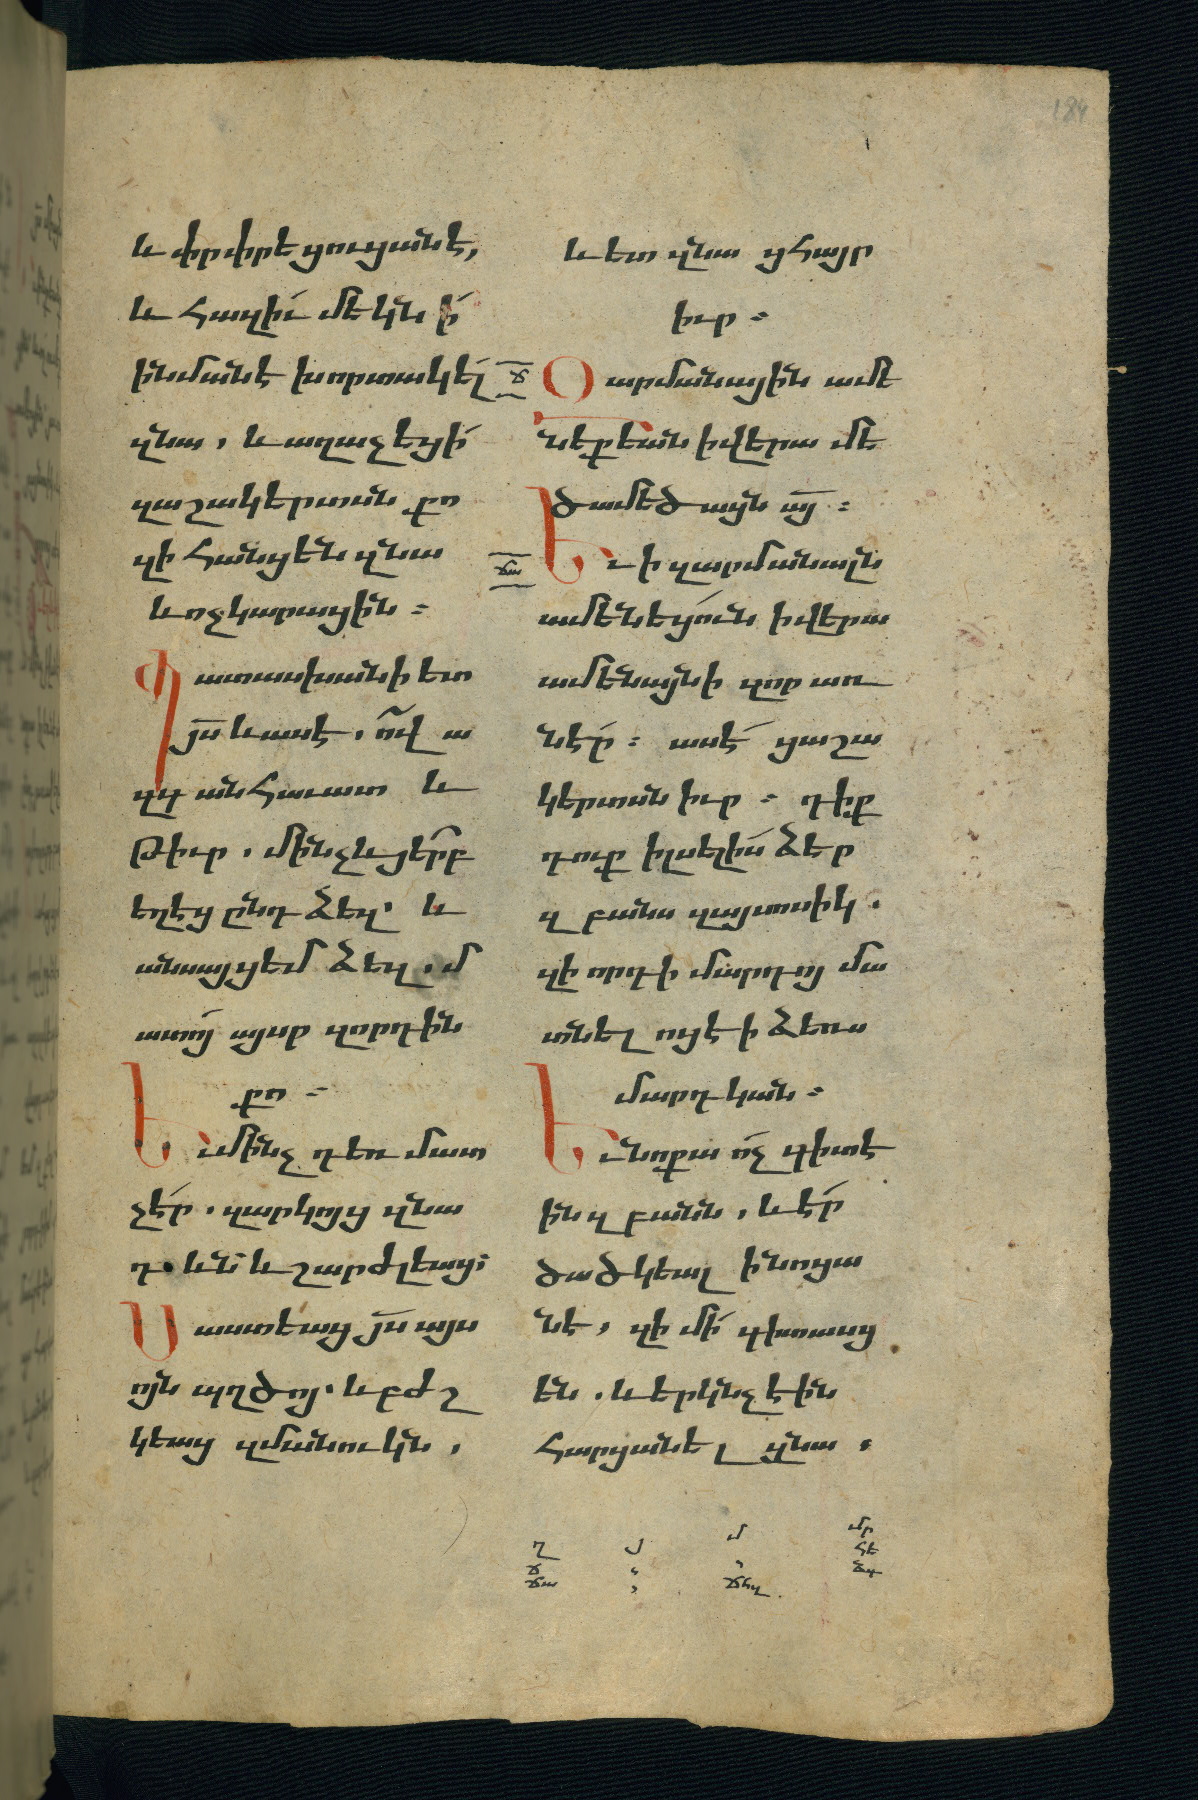 և փրփրեցուցանէ,
և հազիւ մեկնի
ինմանէ խորտակէլ
զնա. և աղաչեցի
զաշակերտսն քո
զի հանցեն զնա
և ոչ կարացին։
Պատասխանի ետ
յս և ասէ. ո՛վ ա
զգ անհաւատ և
թիւր. մինչև յերբ
եղէց ընդ ձեզ. և
անսայցեմ ձեզ. մ
ատո՛յ այսր զորդին
քո։
Եւ մինչ դեռ մատ
չէր. զարկոյց զնա
դևն և շարժլեաց։
Սաստեաց յս այս
ոյն պղծոյ. և բժշ
կեաց զմանուկն,
և ետ զնա ցհայր
իւր։
ճ Զարմանային ամե
նեքեան ի վերա մե
ծամեծացն այ։
ճա Եւ ի զարմանալն
ամենեցուն ի վերա
ամենայնի զոր առ
նէր։ ասէ ցաշա
կերտսն իւր։ դիք
դուք ի լսելիս ձեր
զբանս զայսոսիկ.
զի որդի մարդոյ մա
տնելոց է ի ձեռս
մարդկան։
Եւ նոքա ոչ գիտէ
ին զբանն, և էր
ծածկեալ ի նոցա
նէ, զի մի գիտասց
են. և երկնչէին
հարցանել զնա,
184